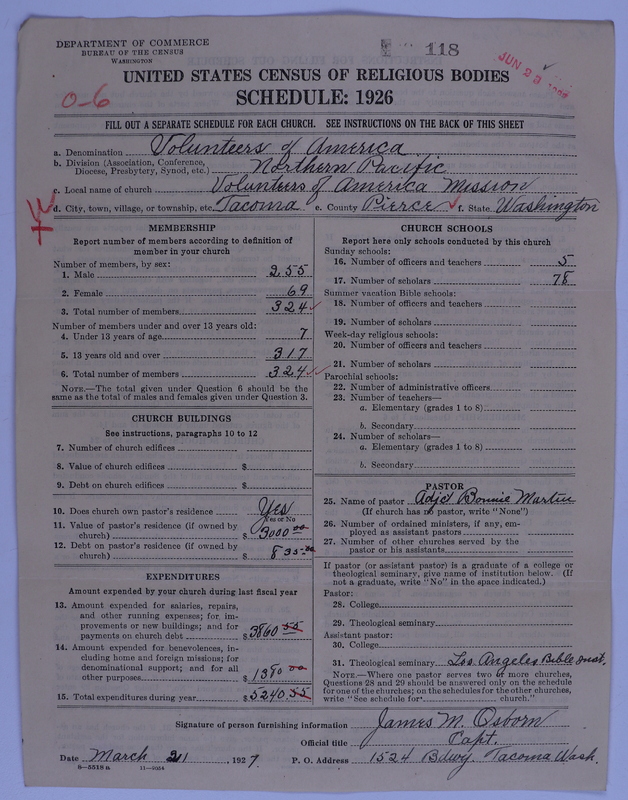 DEPARTMENT OF COMMERCE
BUREAU OF THE CENSUS
WASHINGTON
118
JUN 23
O-6
UNITED STATES CENSUS OF RELIGIOUS BODIES
SCHEDULE: 1926
FILL OUT A SEPARATE SCHEDULE FOR EACH CHURCH. SEE INSTRUCTIONS ON THE BACK OF THIS SHEET
a. Denomination Volunteers of America
b. Division (Association, Conference, Diocese, Presbytery, Synod, etc.) Northern Pacific
c. Local name of church Volunteers of America Mission
d. City, town, village, or township, etc. Tacoma e. County Pierce f. State Washington
MEMBERSHIP
Report number of members according to definition of
member in your church
Number of members, by sex:
1. Male 255
2. Female 69
3. Total number of members 324
Number of members under and over 13 years old:
4. Under 13 years of age 7
5. 13 years old and over 317
6. Total number of members 324
NOTE.—The total given under Question 6 should be
same as the total of males and females given under Question 3.
CHURCH BUILDINGS
See instructions, paragraphs 10 to 12
7. Number of church edifices
8. Value of church edifices $
9. Debt on church edifices $
10. Does church own pastor's residence Yes
Yes or No
11. Value of pastor's residence (if owned by
church) $ 3000 00
12. Debt on pastor's residence (if owned by
church) $ 835.00
EXPENDITURES
Amount expended by church during last fiscal year
13. Amount expended for salaries, repairs,
and other running expenses; for im-
provements or new buildings; and for
payments on church debt $ 3860 55
14. Amount expended for benevolences, in-
cluding home and foreign missions; for
denominational support; and for all
other purposes $ 1380 00
15. Total expenditures during year $ 5240.55
CHURCH SCHOOLS
Report here only schools conducted by this church
Sunday schools:
16. Number of officers and teachers 5
17. Number of scholars 78
Summer vacation Bible schools:
18. Number of officers and teachers
19. Number of scholars
Week-day religious schools:
20. Number of officers and teachers
21. Number of scholars
Parochial schools:
22. Number of administrative officers
23. Number of teachers—
a. Elementary (grades 1 to 8)
b. Secondary
24. Number of scholars—
a. Elementary (grades 1 to 8)
b. Secondary
PASTOR
25. Name of pastor Adjt Bonnie Martin
(If church has no pastor, write "None")
26. Number of ordained ministers, if any, em-
ployed as assistant pastors
27. Number of other churches served by the
pastor or his assistants
If pastor (or assistant pastor) is a graduate of a college or
theological seminary, give name of institution below. (If
not a graduate, write "No" in the space indicated.)
Pastor:
28. College
29. Theological seminary
Assistant pastor:
30. College
31. Theological seminary Los Angeles Bible Inst.
NOTE.—Where one pastor serves two or more churches,
Questions 28 and 29 should be answered only on the schedule
for one of the churches; on the schedules for the other churches,
write "See schedule for church."
Signature of person furnishing information James M. Osborn
Official title Capt.
Date March 21, 1927 P. O. Address 1524 Bdwy. Tacoma Wash.
8—5518 a 11—9364